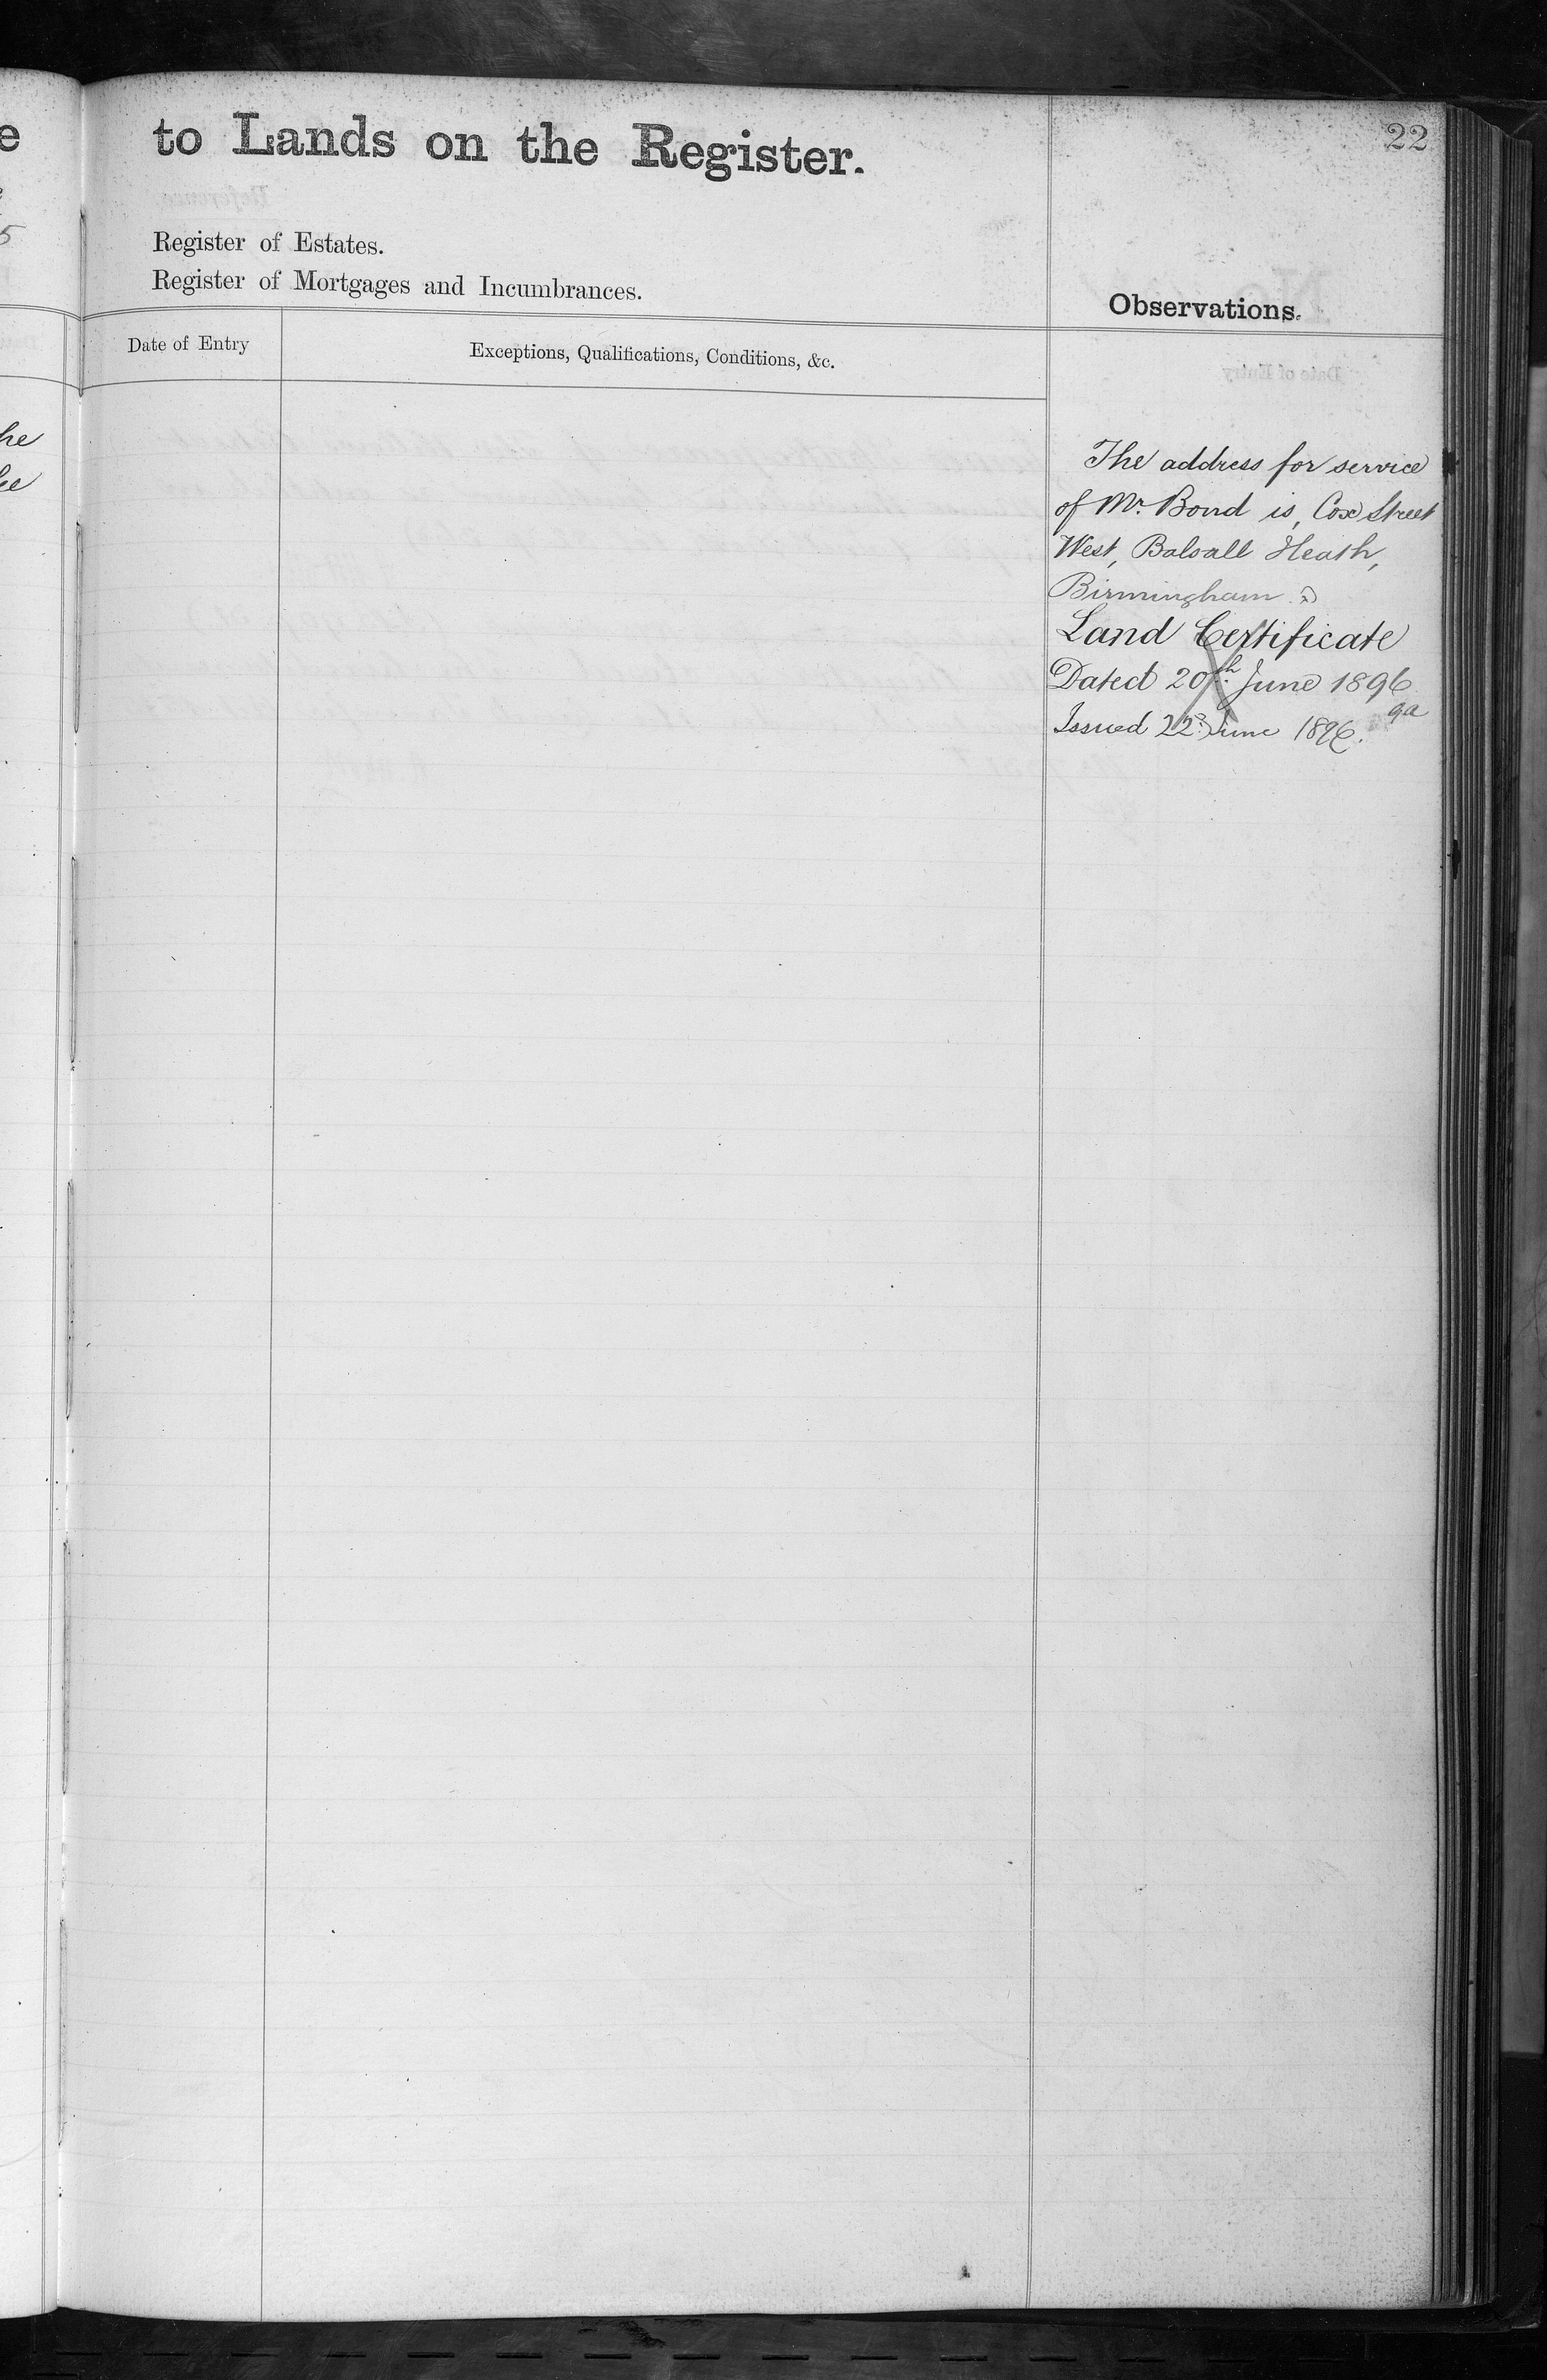 22
to Lands on the Register.
Register of Estates.
Register of Mortgages and Incumbrances.
Observations.
Date of Entry
Exceptions, Qualifications, Conditions, &c.
The address for service
of Mr. Bond is, Cox Street
West, Balsall Heath,
Birmingham.
Land Certificate
Dated 20th June 1896
Issued 22d June 1896.
ga
he
5
e